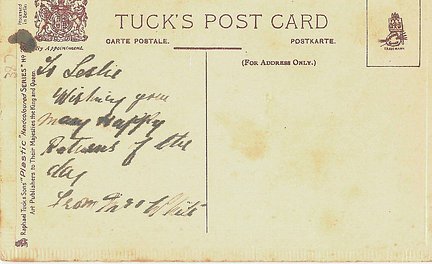 TUCK'S POST CARD
CARTE POSTALE.
POSTKARTE.
(FOR ADDRESS ONLY.)
By Appointment.
TRADE MARK
Raphael Tuck & Sons' "Plastic" SERIES Nº
Art Publishers to Their Majesties the King and Queen.
To Leslie
Wishing you
Many Happy
Returns of the
day
From Mrs White